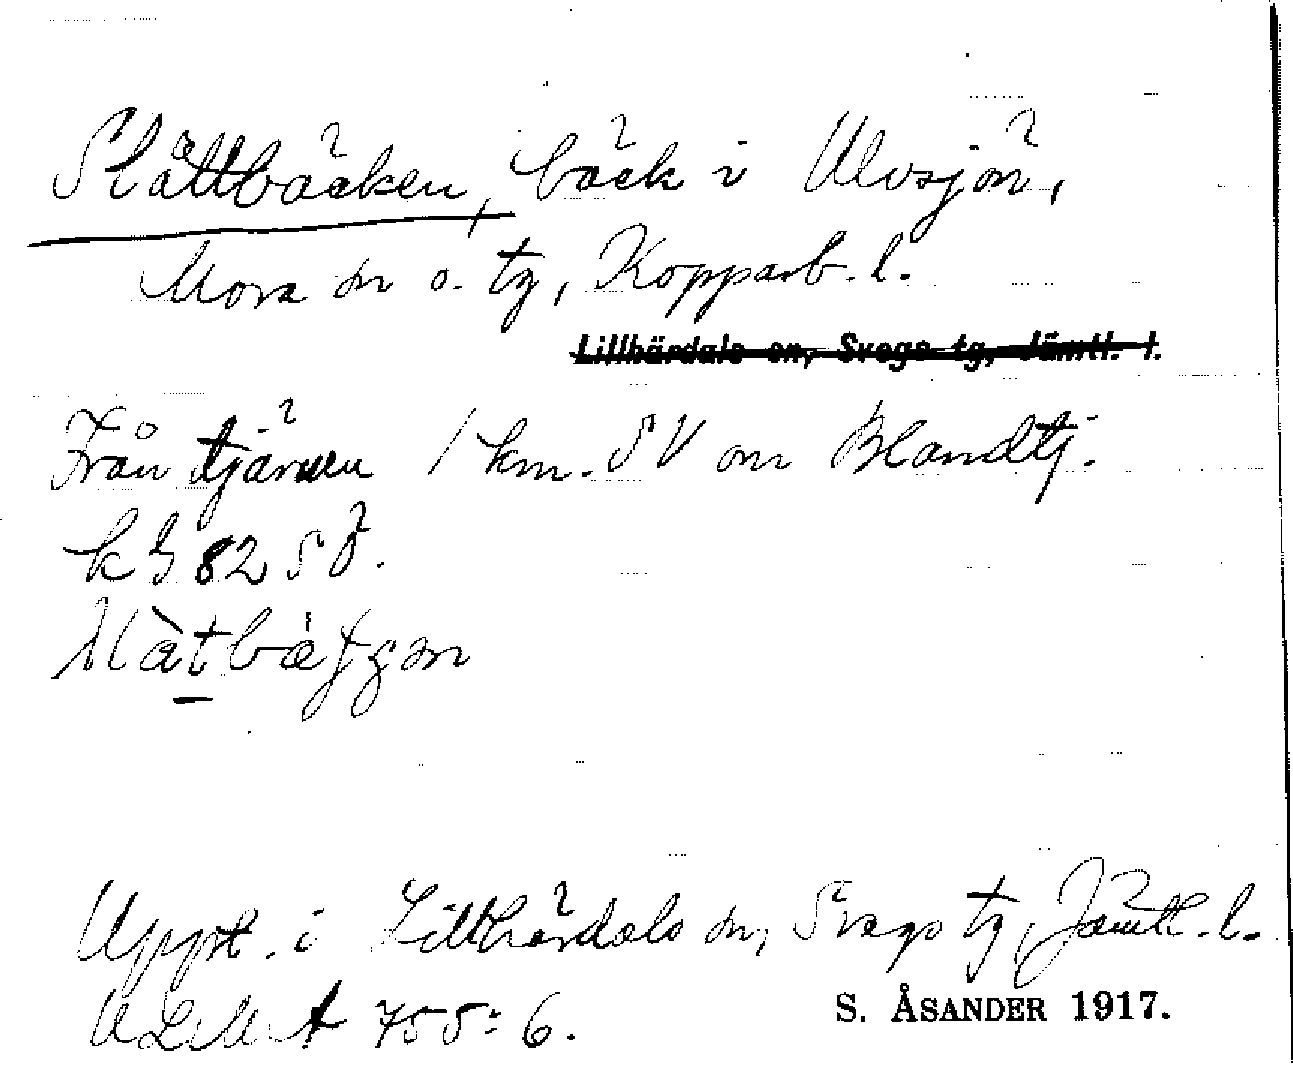 Slättbäcken, bäck i Ulvsjön,
Mora sn o. tg, Kopparb. l.
Lillhärdals sn, Svegs tg, Jämtl. l.
Från tjärnen 1 km. SV om Blandtj.
kbl 82 SÖ.
Uppt. i Lillhärdals sn, Svegs tg, Jämtl. l.
ULMA 755:6.
S. ÅSANDER 1917.